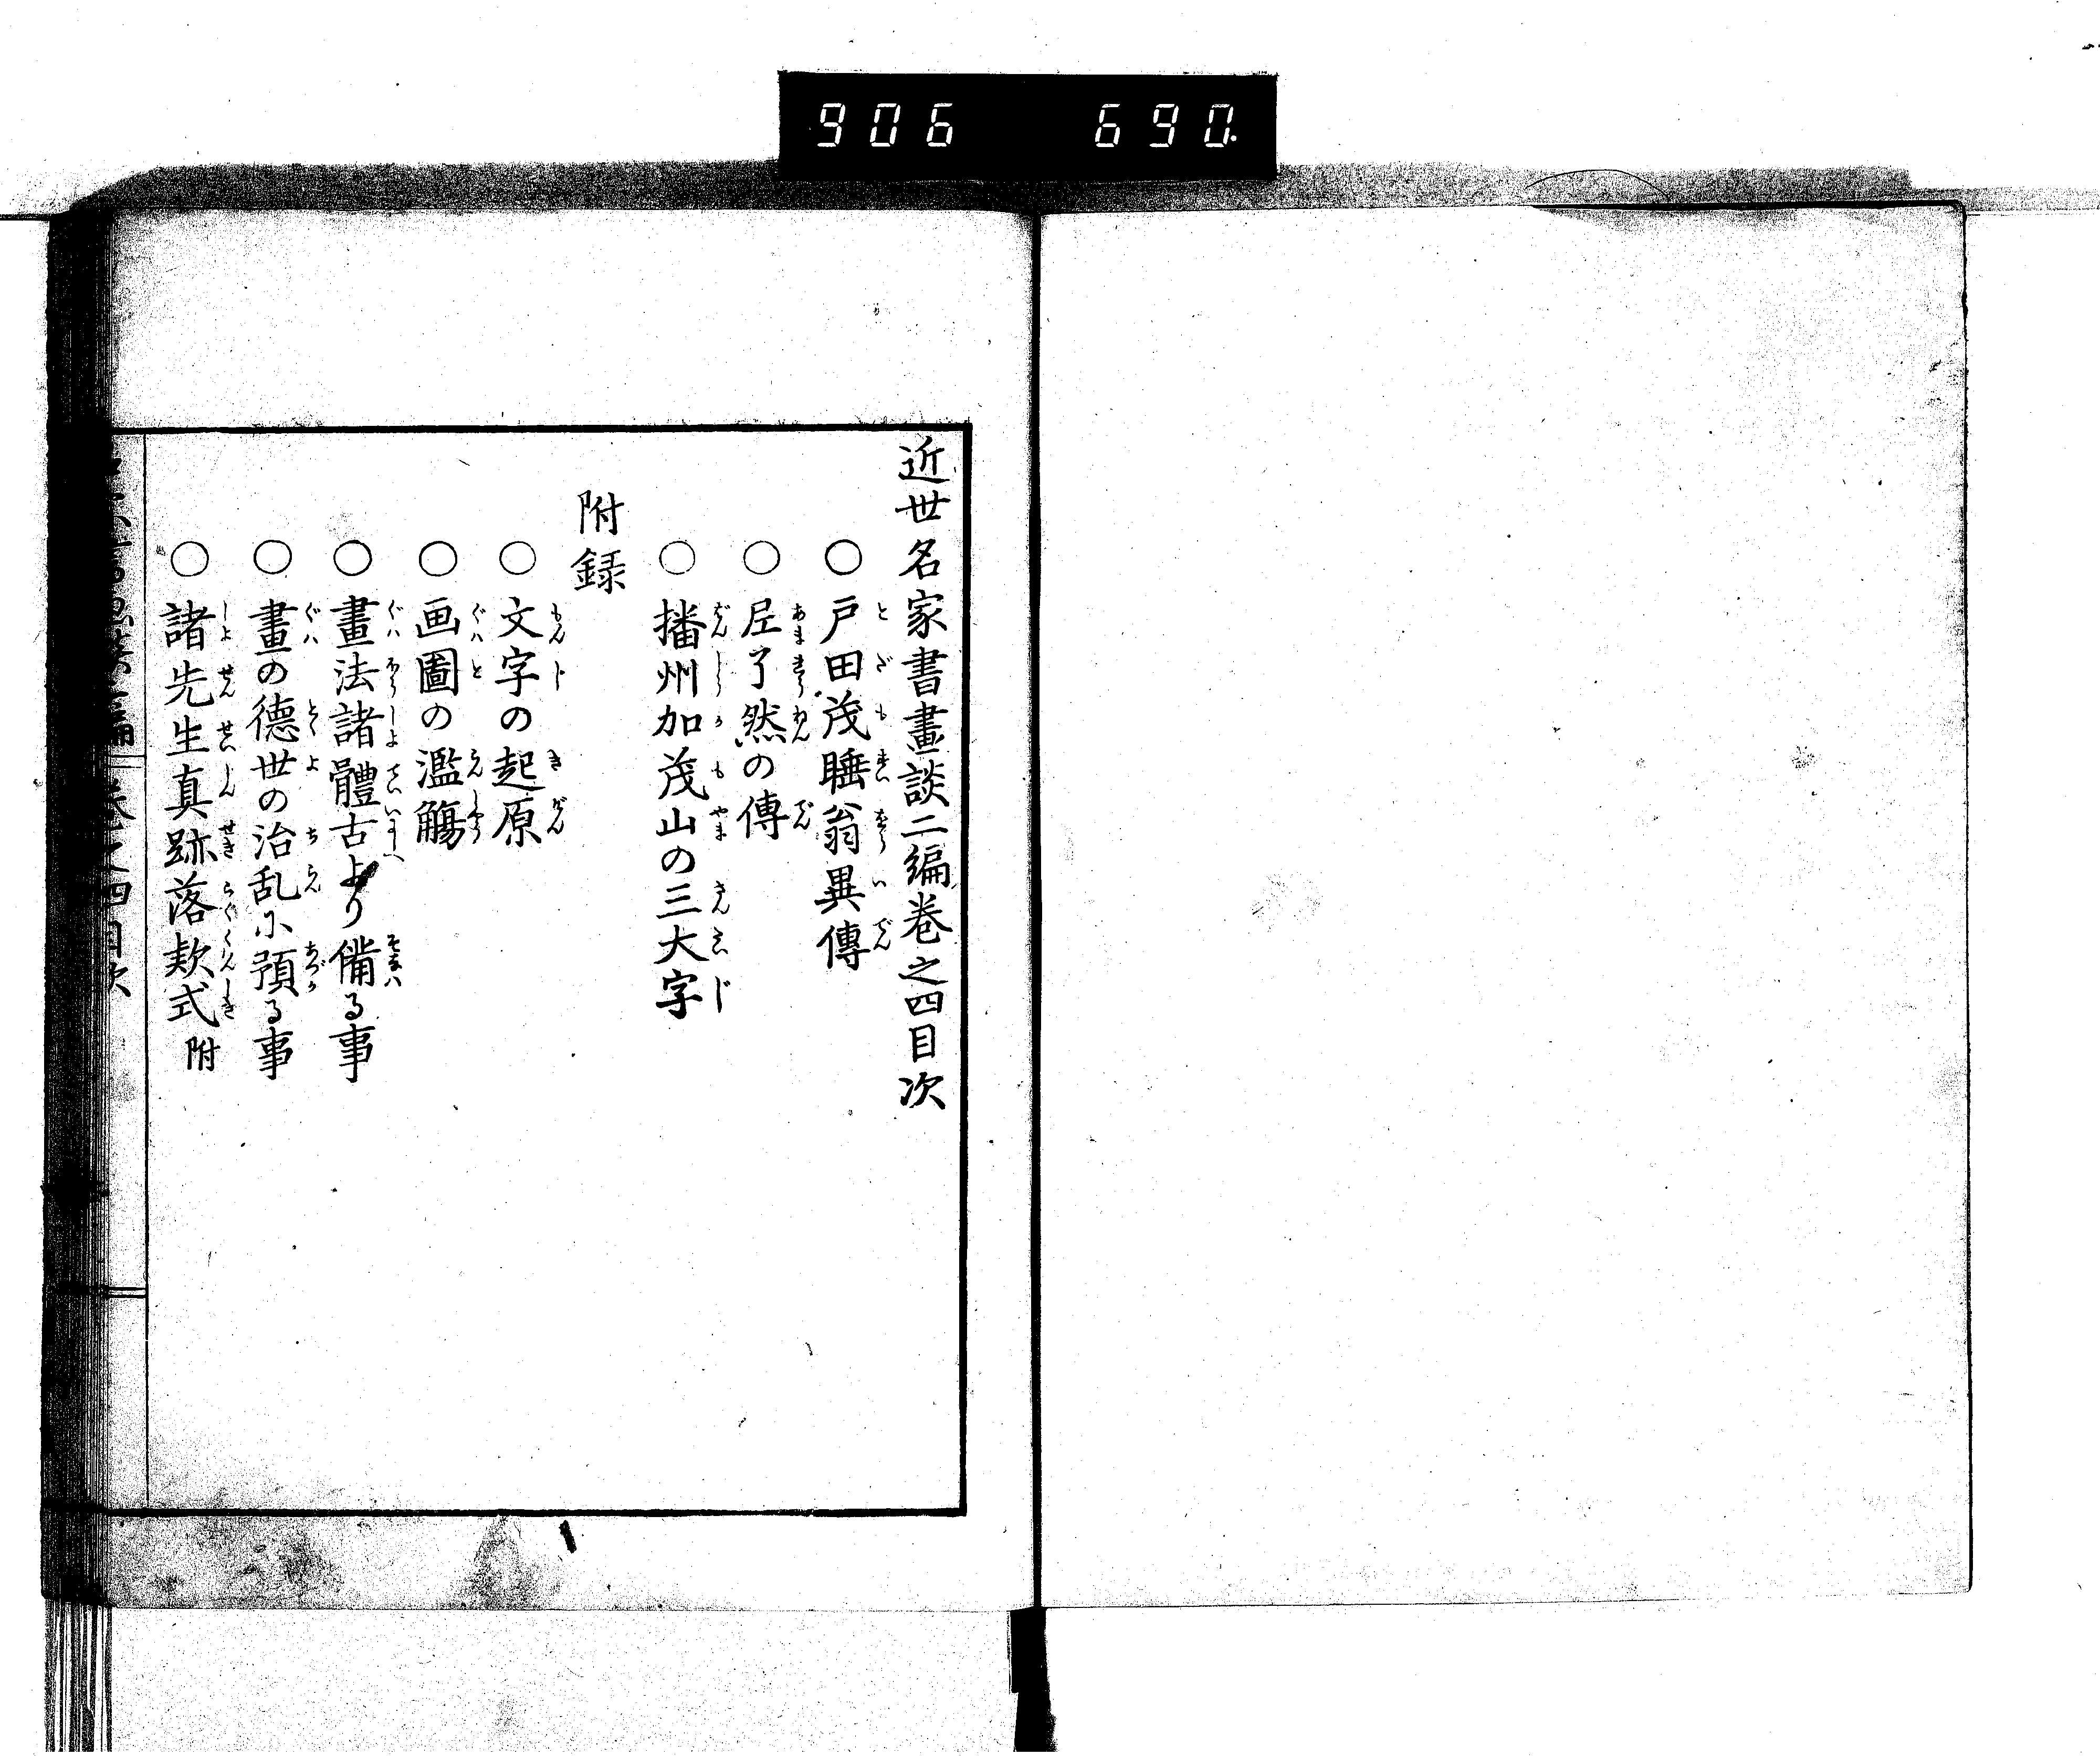 906 690.
近世名家書畫談二編卷之四目次
○戸田茂睡翁異傳
○尼了然の傳
○播州加茂山の三大字
附録
○文字の起原
○画圖の濫觴
○畫法諸體古より備る事
○畫の德世の治乱に預る事
○諸先生真跡落款式附
卷之四目次